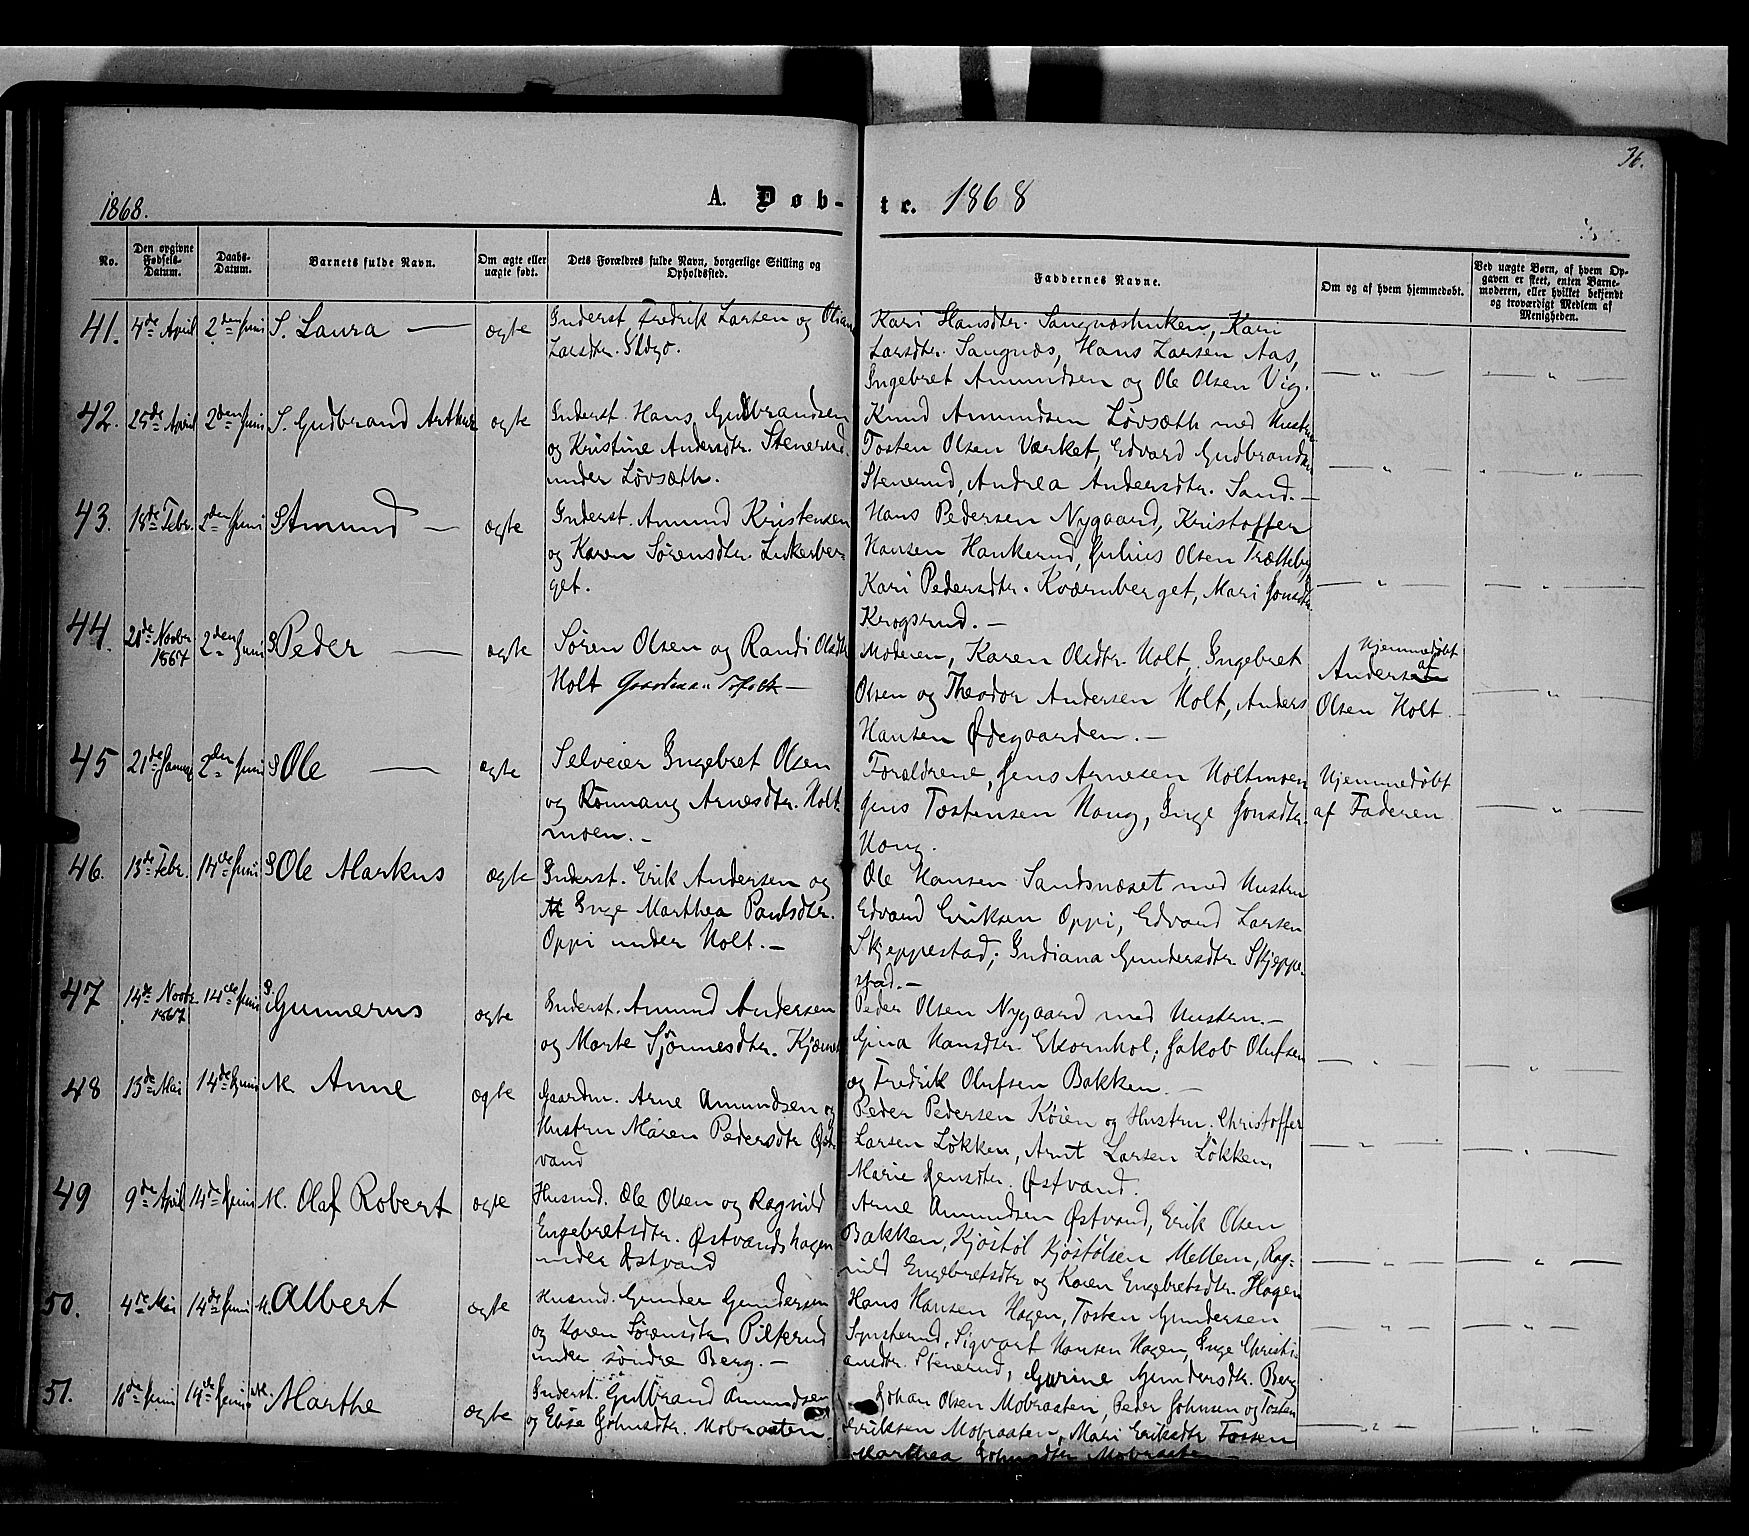 36.
1868.
A. Døb-
te. 1868
No.
Den opgivne Fødsels-Datum.
Daabs-Datum.
Barnets fulde Navn.
Om ægte eller uægte født.
Dets Forældres fulde Navn, borgerlige Stilling og Opholdssted.
Faddernes Navne.
Om og af hvem hjemmedøbt.
Ved uægte Børn, af hvem Op-
gaven er skeet, enten Barne-
moderen, eller hvilket bekjendt
og troværdigt Medlem af
Menigheden.
41. 4de April 2den Juni S. Laura — ægte
Inderst Fredrik Larsen og
Larsdtr.
Kari Hansdtr. Sangnæshuken, Kari
Larsdtr. Sangnæs, Hans Larsen Aas,
Ingebret Amundsen og Ole Olsen Vig.
— " — — " —
42. 25de April 2den Juni S. Gudbrand Arthur ægte
Inderst. Hans Gudbrandsen
og Kristine Andersdtr. Stenerud
under Løvsæth.
Knud Amundsen Løvsæth med Hustru
Tosten Olsen Værket, Edvard Gudbrandsen
Stenerud, Andrea Andersdtr. Sand. —
— " — — " —
43. 18de Febr. 2den Juni S Amund — ægte
Inderst. Amund Kristensen
og Karen Sørensdtr. Lukerber-
get.
Hans Pedersen Nygaard, Kristoffer
Hansen Haukerud, Julius Olsen Trætteby
Kari Pedersdtr. Kværnberget, Mari Jonsdtr.
Krogsrud. —
— " — — " —
44. Novbr 1867 2den Juni S Peder — ægte
Søren Olsen og Randi Olsdtr
Holt
Moderen, Karen Olsdtr. Holt, Ingebret
Olsen og Theodor Andersen Holt, Anders
Hansen Ødegaarden. —
Hjemmedøbt
af
Anders
Olsen Holt.
— " —
45 21de Januar 2den Juni S Ole — ægte
Selveier Ingebret Olsen
og Rønnaug Arnesdtr. Holt
moen. —
Forældrene, Jens Arnesen Holtmoen
Jens Tostensen Haug, Inge Jonsdtr.
Haug.
Hjemmedøbt
af Faderen
— " —
46. 13de Febr. 14de Juni S Ole Markus ægte
Inderst. Erik Andersen og
Inge Marthea Paulsdtr.
Oppi under Holt. —
Ole Hansen Sandsnæset med Hustru
Edvard Eriksen Oppi, Edvard Larsen
Skjeppestad, Indiana Gundersdtr Skjeppe-
stad. —
47 14de Novbr. 1867 14de Juni S. Gunnerus ægte
Inderst. Amund Andersen
og Marte Tjønnesdtr.
Peder Olsen Nygaard med Hustru. —
Gina Hansdtr. Ekornhol, Jakob Olufsen
og Fredrik Olufsen Bakken. —
— " — — " —
48 13de Mai 14de Juni M. Anne ægte
Gaardm. Arne Amundsen og
Hustru Maren Pedersdtr Øst-
vand
Peder Pedersen Køien og Hustru. Christoffer
Larsen Løkken, Arnt Larsen Løkken,
Marie Jensdtr. Østvand.
— " — — " —
49 9de April 14de Juni M. Olaf Robert ægte
Husmd. Ole Olsen og Ragnild
Engebretsdtr. Østvandshagen
under Østvand
Arne Amundsen Østvand, Erik Olsen
Bakken, Kjøstøl Kjøstølsen Mellem, Rag-
nild Engebretsdtr og Karen Engebretsdtr. Hagen
— " — — " —
50. 4de Mai 14de Juni M. Albert ægte
Husmd. Gunder Gundersen
og Karen Sørensdtr. Pilterud
under søndre Berg. —
Hans Hansen Hagen, Tosten Gundersen
Synsterud, Sigvart Hansen Hagen, Inge Christi-
ansdtr. Stenerud, Gurine Gundersdtr. Berg
— " — — " —
51. Juni 14de Juni M. Marthe ægte
Inderst. Gulbrand Amundsen
og Elise Johnsdtr. Mobraaten.
Johan Olsen Mobraaten, Peder Johnsen og Tosten
Eriksen Mobraaten, Mari Eriksdtr Fossen
Marthea Johnsdtr Mobraaten —
— " — — " —